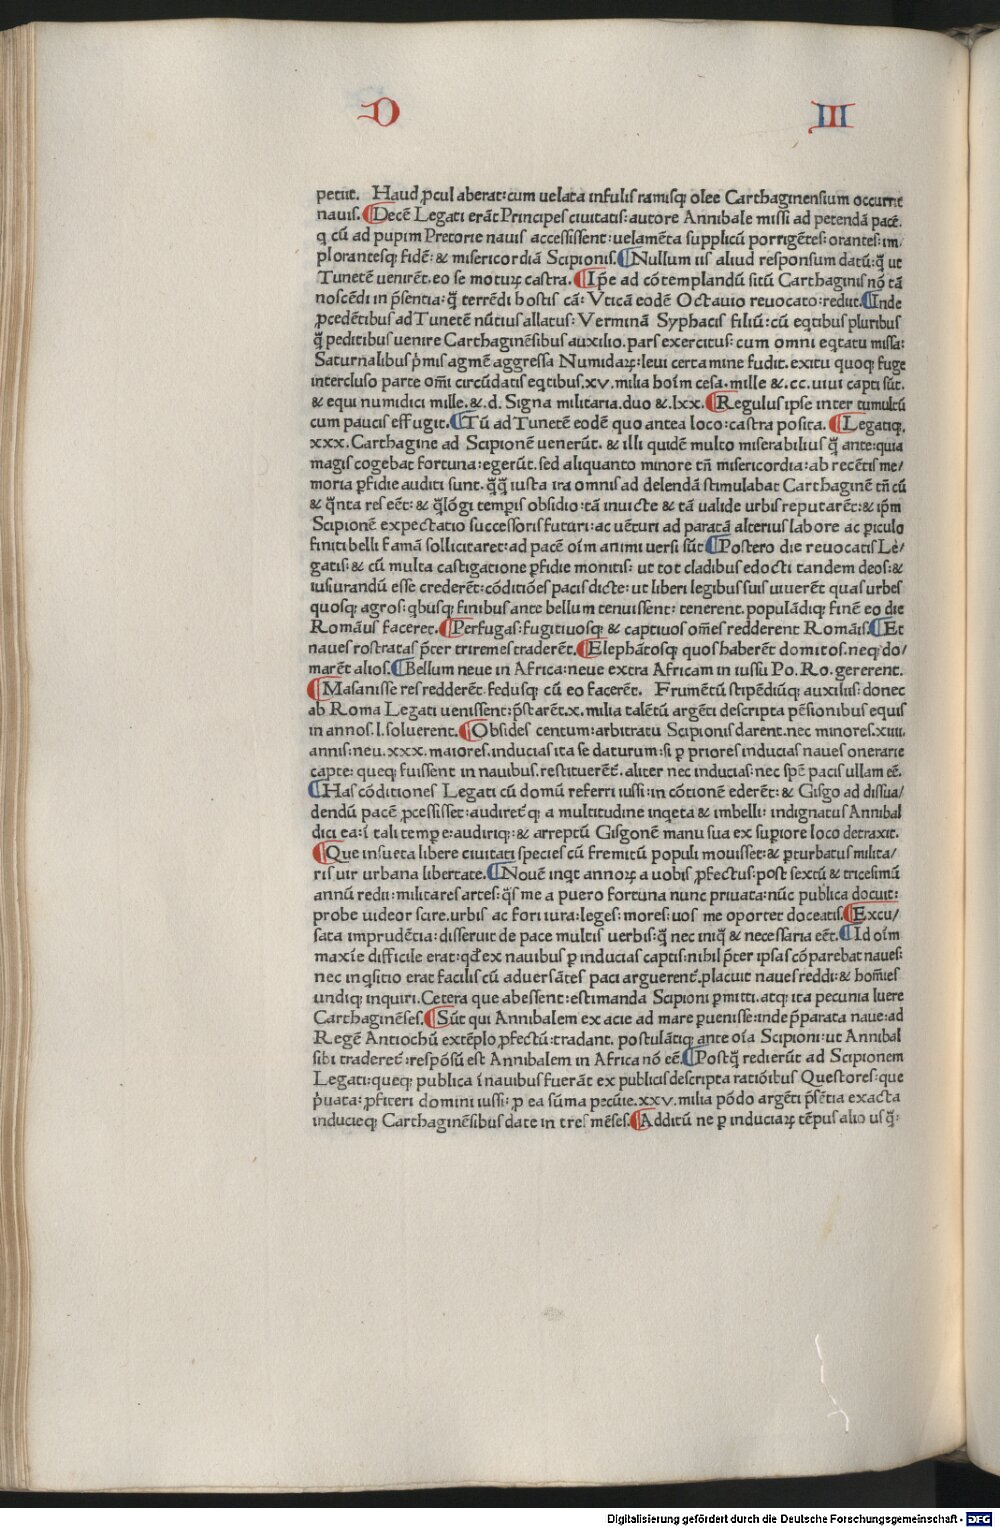 D III
petiit. Haud ꝓcul aberat: cum uelata infulis ramisqꝫ olee Carthaginensium occurrit
nauis. ¶Decē Legati erāt Principes ciuitatis: autore Annibale missi ad petendā pacē.
q cū ad pupim Pretorie nauis accessissent: uelamēta supplicū porrigētes: orantes: im/
plorantesqꝫ fidē: & misericordiā Scipionis. ¶Nullum iis aliud responsum datū: q̄ ut
Tunetē uenirēt. eo se moturꝝ castra. ¶Ip̄e ad cōtemplandū sitū Carthaginis nō tā
noscēdi in p̄sentia: q̄ terrēdi hostis cā: Vticā eodē Octauio reuocato: rediit. ¶Inde
ꝓcedētibus ad Tunetē nūtius allatus: Verminā Syphacis filiū: cū eqtibus pluribus
q̄ peditibus uenire Carthaginēsibus auxilio. pars exercitus: cum omni eqtatu missa:
Saturnalibus p̄mis agmē aggressa Numidaꝝ: leui certamine fudit. exitu quoqꝫ fuge
intercluso parte om̄i circūdatis eqtibus. xv. milia hoīm cesa. mille &. cc. uiui capti sūt.
& equi numidici mille. &. d. Signa militaria. duo &. lxx. ¶Regulus ipse inter tumultū
cum paucis effugit. ¶Tū ad Tunetē eodē quo antea loco: castra posita. ¶Legatiqꝫ.
xxx. Carthagine ad Scipionē uenerūt. & illi quidē multo miserabilius q̄ ante: quia
magis cogebat fortuna: egerūt. sed aliquanto minore tn̄ misericordia: ab recētis me/
moria ꝑfidie auditi sunt. q̄q̄ iusta ira omnis ad delendā stimulabat Carthaginē tn̄ cū
& q̄nta res eēt: & q̄lōgi temꝑis obsidio: tā inuicte & tā ualide urbis reputarēt: & ip̄m
Scipionē expectatio successoris futuri: ac uēturi ad paratā alterius labore ac ꝑiculo
finiti belli famā sollicitaret: ad pacē oīm animi uersi sūt ¶Postero die reuocatis Le/
gatis: & cū multa castigatione ꝑfidie monitis: ut tot cladibus edocti tandem deos: &
iusiurandū esse crederēt: cōditiōes pacis dicte: ut liberi legibus suis uiuerēt quas urbes
quosqꝫ agros: qbusqꝫ finibus ante bellum tenuissent: tenerent. populādiqꝫ finē eo die
Romāus faceret. ¶Perfugas: fugitiuosqꝫ & captiuos om̄es redderent Romāis. ¶Et
naues rostratas p̄ter triremes traderēt. ¶Elephātosqꝫ quos haberēt domitos. neqꝫ do/
marēt alios. ¶Bellum neue in Africa: neue extra Africam in iussu Po. Ro. gererent.
¶Masanisse res redderēt. fedusqꝫ cū eo facerēt. Frumētū stipēdiūqꝫ auxiliis: donec
ab Roma Legati uenissent: p̄starēt. x. milia talētū argēti descripta pēsionibus equis
in annos. l. soluerent. ¶Obsides centum: arbitratu Scipionis darent. nec minores. xiiii.
annis: neu. xxx. maiores. inducias ita se daturum: si ꝑ priores inducias naues onerarie
capte: queqꝫ fuissent in nauibus. restituerēt. aliter nec inducias: nec spē pacis ullam eē.
¶Has cōditiones Legati cū domū referri iussi: in cōtionē ederēt: & Gisgo ad dissua/
dendū pacē ꝓcessisset: audiretꝰ qꝫ a multitudine inqeta & imbelli: indignatus Annibal
dici ea: ī tali temꝑe: audiriqꝫ: & arreptū Gisgonē manu sua ex suꝑiore loco detraxit.
¶Que insueta libere ciuitati species cū fremitū populi mouisset: & ꝑturbatus milita/
ris uir urbana libertate. ¶Nouē inqt annoꝝ a uobis ꝓfectus: post sextū & tricesimū
annū redii: militares artes: q̄s me a puero fortuna nunc priuata: nūc publica docuit:
probe uideor scire. urbis ac fori iura: leges: mores: uos me oportet doceatis. ¶Excu/
sata imprudētia: disseruit de pace multis uerbis: q̄ nec iniqꝫ & necessaria eēt. ¶Id oīm
maxīe difficile erat: qđ ex nauibus ꝑ inducias captis: nihil p̄ter ipsas cōparebat naues:
nec inqsitio erat facilis cū aduersātes paci arguerent̄. placuit naues reddi: & hom̄ies
undiqꝫ inquiri. Cetera que abessent: estimanda Scipioni ꝑmitti. atqꝫ ita pecunia luere
Carthaginēses. ¶Sūt qui Annibalem ex acie ad mare ꝑuenisse: inde p̄parata naue: ad
Regē Antiochū extēplo ꝓfectū: tradant. postulātiqꝫ ante oīa Scipioni: ut Annibal
sibi traderet̄: respōsū est Annibalem in Africa nō eē. ¶Postq̄ redierūt ad Scipionem
Legati: queqꝫ publica ī nauibus fuerāt ex publicis descripta ratiōibus Questores: que
p̄uata: ꝓfiteri domini iussi: ꝓ ea sūma pecūie. xxv. milia pōdo argēti p̄sētia exacta
inducieqꝫ Carthaginēsibus date in tres mēses. ¶Additū ne ꝑ induciaꝝ tēpus alio us q̄:
Digitalisierung gefördert durch die Deutsche Forschungsgemeinschaft - DFG